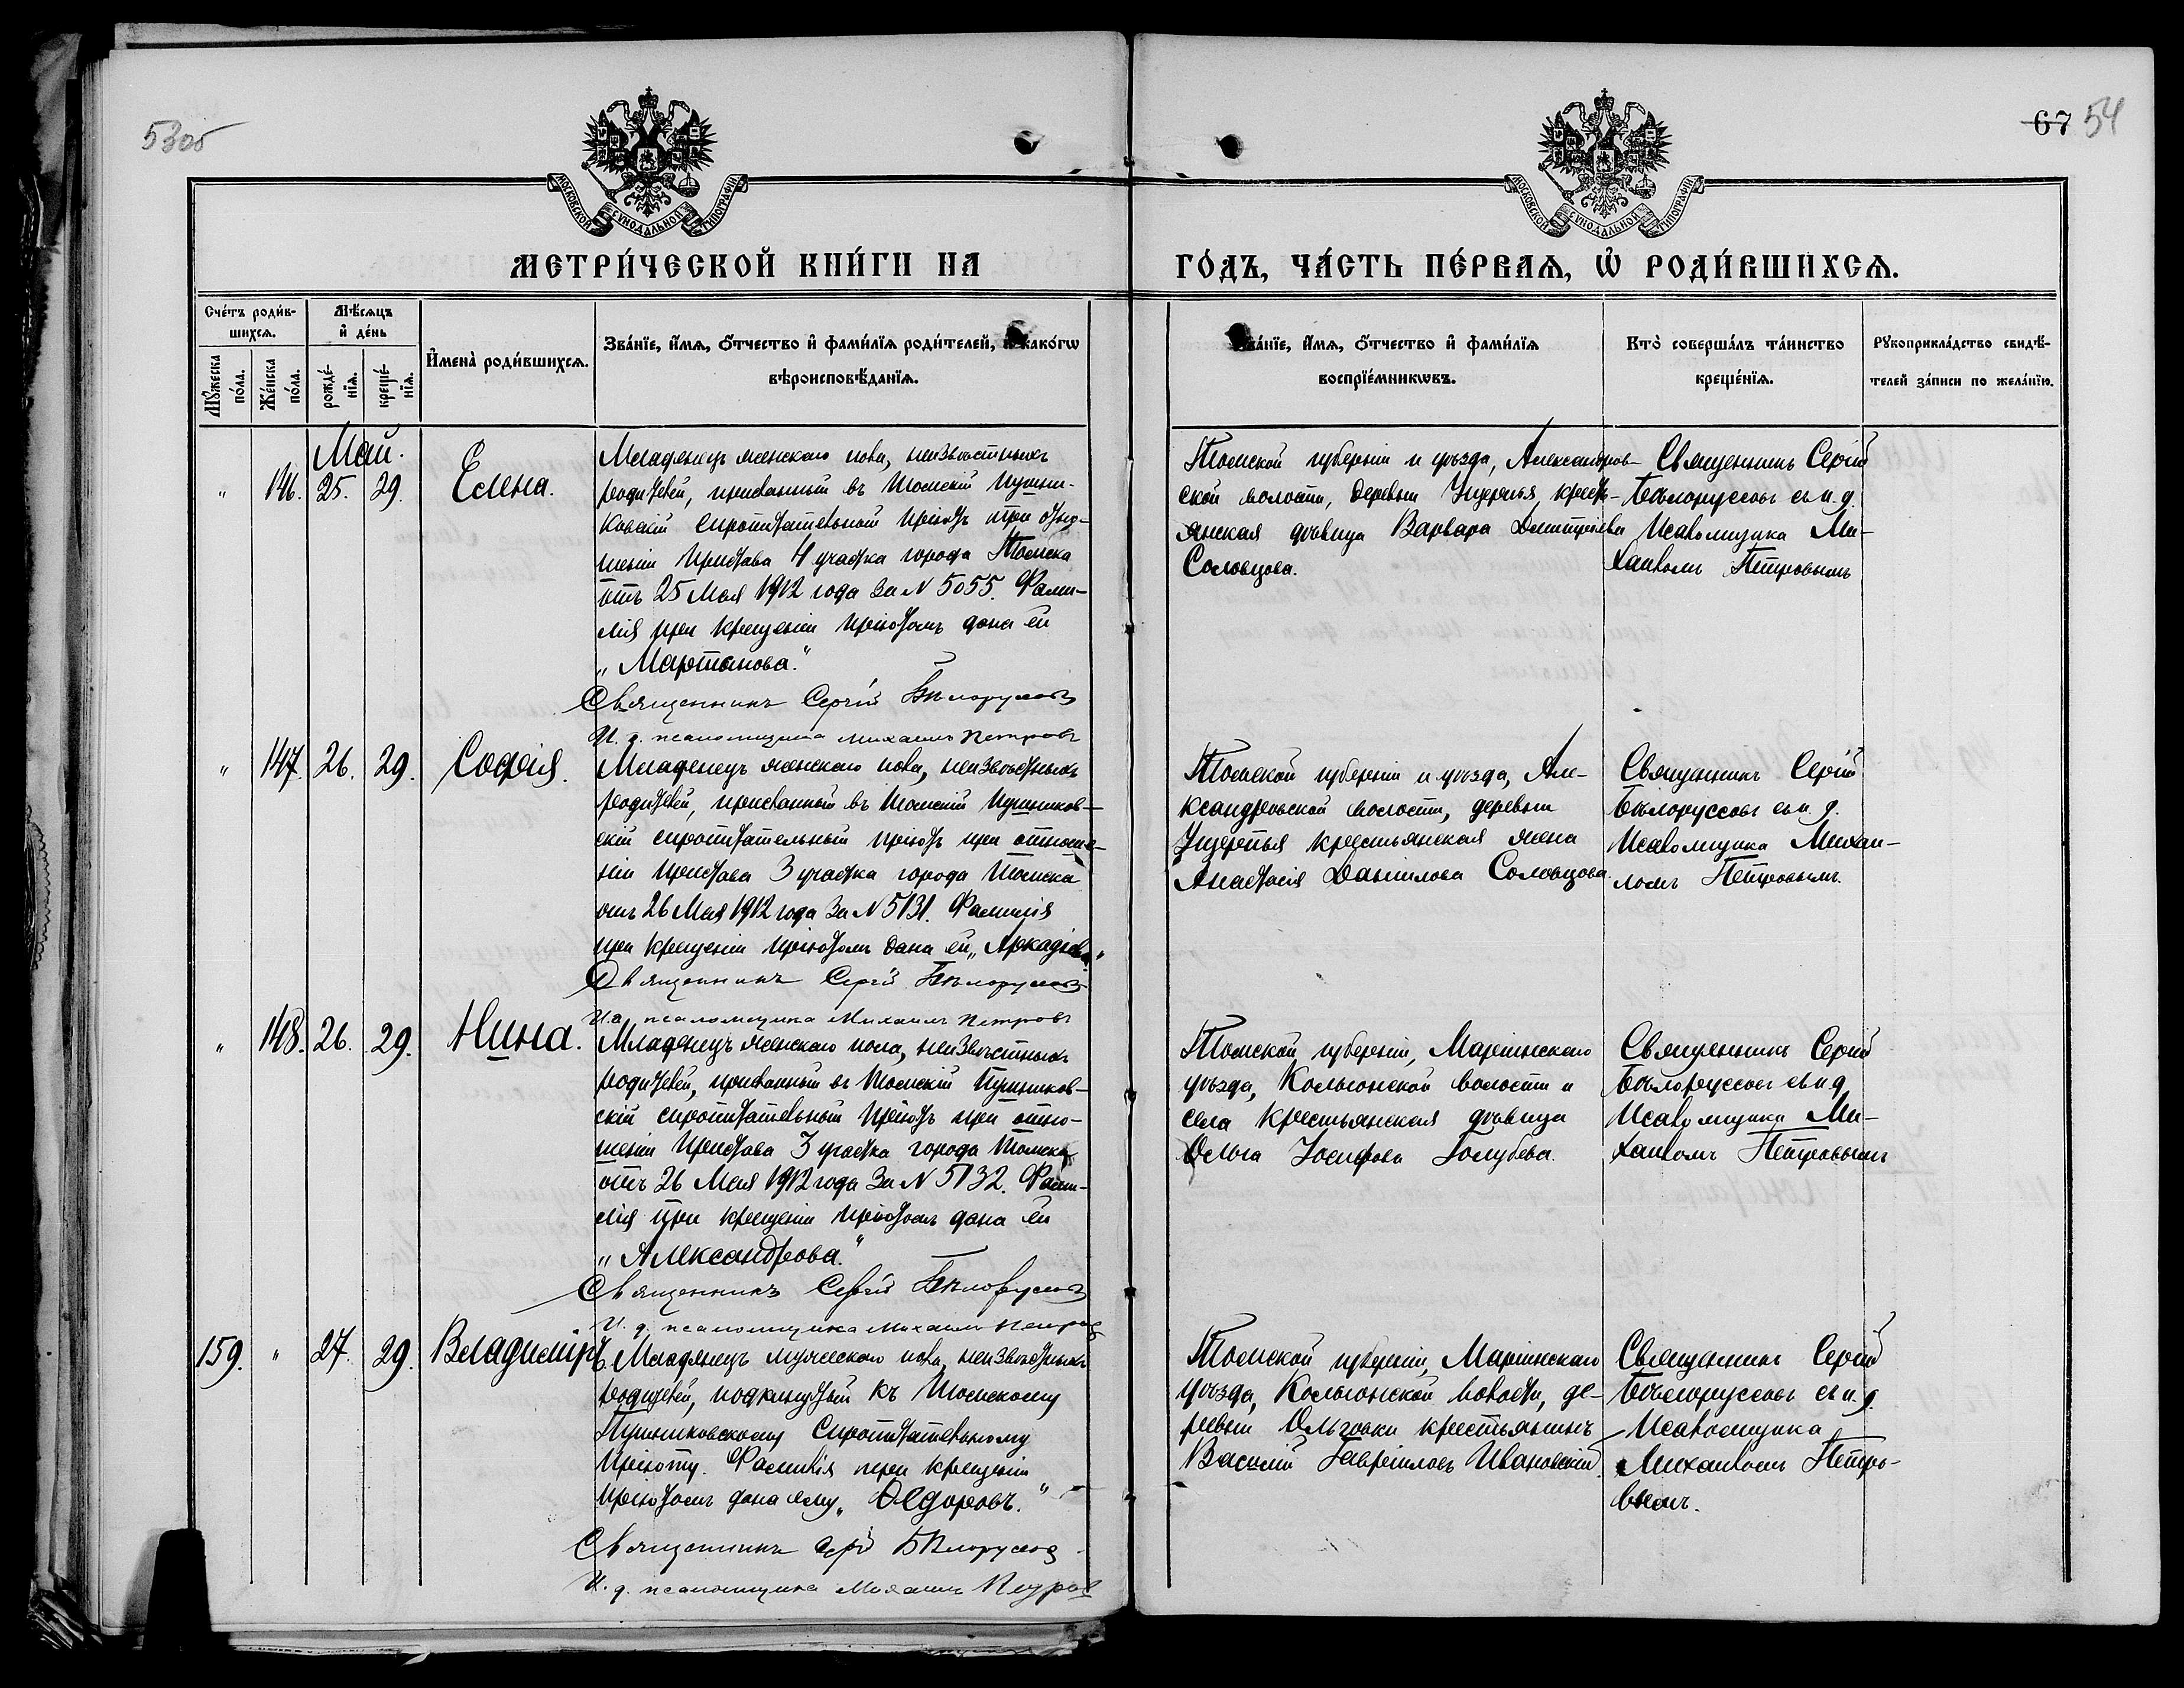 53об
67 54
МОСКОВСКОЙ СѴНОДАЛЬНОЙ ТИПОГРАФІИ
МОСКОВСКОЙ СѴНОДАЛЬНОЙ ТИПОГРАФІИ
МЕТРИ́ЧЕСКОЙ КНИ́ГИ НА
ГО́ДЪ, ЧА́СТЬ ПЕ́РВАѦ, Ѡ РОДИ́ВШИХСѦ.
Сче́тъ роди́в-
шихсѧ.
Мꙋжеска
по́ла.
Же́нска
по́ла.
Мѣ́сѧцъ
и де́нь
рожде́-
нїѧ.
креще́-
нїѧ.
Имена̀ роди́вшихсѧ.
Зва́нїе, и́мѧ, о́тчество и фами́лїѧ роди́телей, и како́гѡ
вѣроисповѣ́данїѧ.
Зва́нїе, и́мѧ, о́тчество и фами́лїѧ
воспрїе́мникѡвъ.
Кто̀ соверша́лъ та́инство
креще́нїѧ.
Рꙋкоприкла́дство свидѣ́-
телей за́писи по жела́нїю.
Май.
" 146. 25. 29. Елена.
Младенецъ женскаго пола, неизвѣстныхъ
родителей, присланный въ Томскій Пушни-
ковскій сиропитательный пріютъ при отно-
шеніи Пристава 4 участка города Томска
отъ 25 Мая 1912 года за N 5055. Фами-
лія при крещеніи пріютомъ дана ей
„Мартынова."
Священникъ Сергій Бѣлоруссовъ
И. д. псаломщика Михаилъ Петровъ
Томской губерніи и уѣзда, Александров-
ской волости, деревни Ущерпья, кресть-
янская дѣвица Варвара Димитріева
Соловцова.
Священникъ Сергій
Бѣлоруссовъ съ и. д.
Псаломщика Ми-
хаиломъ Петровымъ
" 147. 26. 29. Софія.
Младенецъ женскаго пола, неизвѣстныхъ
родителей, присланный въ Томскій Пушников-
скій сиропитательный пріютъ при отноше-
ніи Пристава 3 участка города Томска
отъ 26 Мая 1912 года за N 5131. Фамилія
при крещеніи пріютомъ дана ей „Аркадіева"
Священникъ Сергій Бѣлоруссовъ
И. д. псаломщика Михаилъ Петровъ
Томской губерніи и уѣзда, Але-
ксандровской волости, деревни
Ущерпья крестьянская жена
Анастасія Даніилова Соловцова.
Священникъ Сергій
Бѣлоруссовъ съ и. д.
Псаломщика Михаи-
ломъ Петровымъ.
" 148. 26. 29. Нина.
Младенецъ женскаго пола, неизвѣстныхъ
родителей, присланный въ Томскій Пушников-
скій сиропитательный пріютъ при отно-
шеніи Пристава 3 участка города Томска
отъ 26 Мая 1912 года за N 5132. Фами-
лія при крещеніи пріютомъ дана ей
„Александрова."
Священникъ Сергій Бѣлоруссовъ
И. д. псаломщика Михаилъ Петровъ
Томской губерніи, Маріинскаго
уѣзда, Кольонской волости и
села крестьянская дѣвица
Ольга Іосифова Голубева.
Священникъ Сергій
Бѣлоруссовъ съ и. д.
Псаломщика Ми-
хаиломъ Петровымъ
159. " 27. 29. Владиміръ
Младенецъ мужескаго пола, неизвѣстныхъ
родителей, подкинутый къ Томскому
Пушниковскому Сиропитательному
пріюту. Фамилія при крещеніи
пріютомъ дана ему „Ѳедоровъ."
Священникъ Сергій Бѣлоруссовъ
И. д. псаломщика Михаилъ Петровъ
Томской губерніи, Маріинскаго
уѣзда, Кольонской волости, де-
ревни Ольговки крестьянинъ
Василій Гавріиловъ Ивановскій.
Священникъ Сергій
Бѣлоруссовъ съ и. д.
Псаломщика
Михаиломъ Петро-
вымъ.